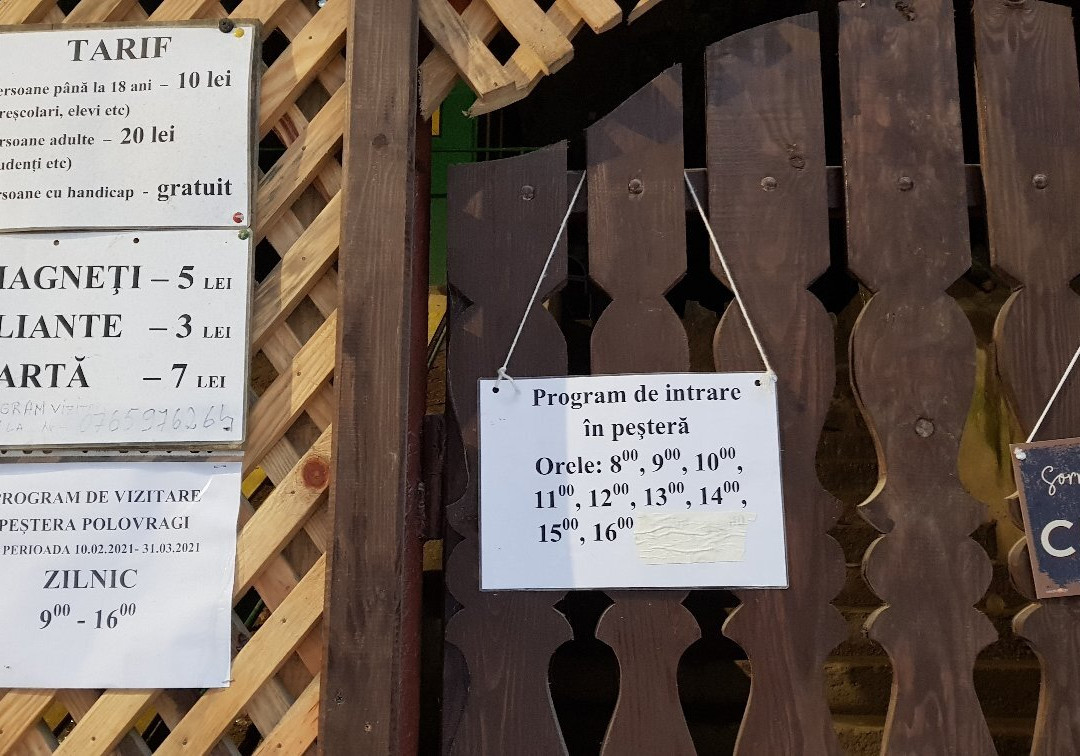 TARIF
ersoane până la 18 ani – 10 lei
reșcolari, elevi etc)
rsoane adulte – 20 lei
udenți etc)
rsoane cu handicap - gratuit
IAGNEŢI – 5 LEI
LIANTE – 3 LEI
ARTĂ – 7 LEI
PROGRAM DE VIZITARE
PEȘTERA POLOVRAGI
PERIOADA 10.02.2021- 31.03.2021
ZILNIC
9⁰⁰ - 16⁰⁰
Program de intrare
în peşteră
Orele: 8⁰⁰, 9⁰⁰, 10⁰⁰,
11⁰⁰, 12⁰⁰, 13⁰⁰, 14⁰⁰,
15⁰⁰, 16⁰⁰
C